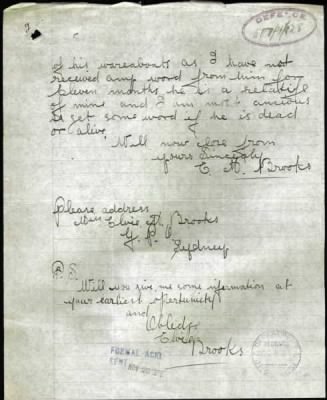 DEFENCE
of his warenbouts as I have not
received any word from him for
eleven months he is a relatif
of mine and I am most anxious
to get some word if he is dead
or alive,
Will now close from
yours Sincerely
E. M. Brooks
Please address
Miss Elvie M. Brooks
G. P. O
Sydney
P. S.
Will you give me some information at
your earliest opertunity
and
Oblidge
Brooks
FORMAL ACK
SENT NOV